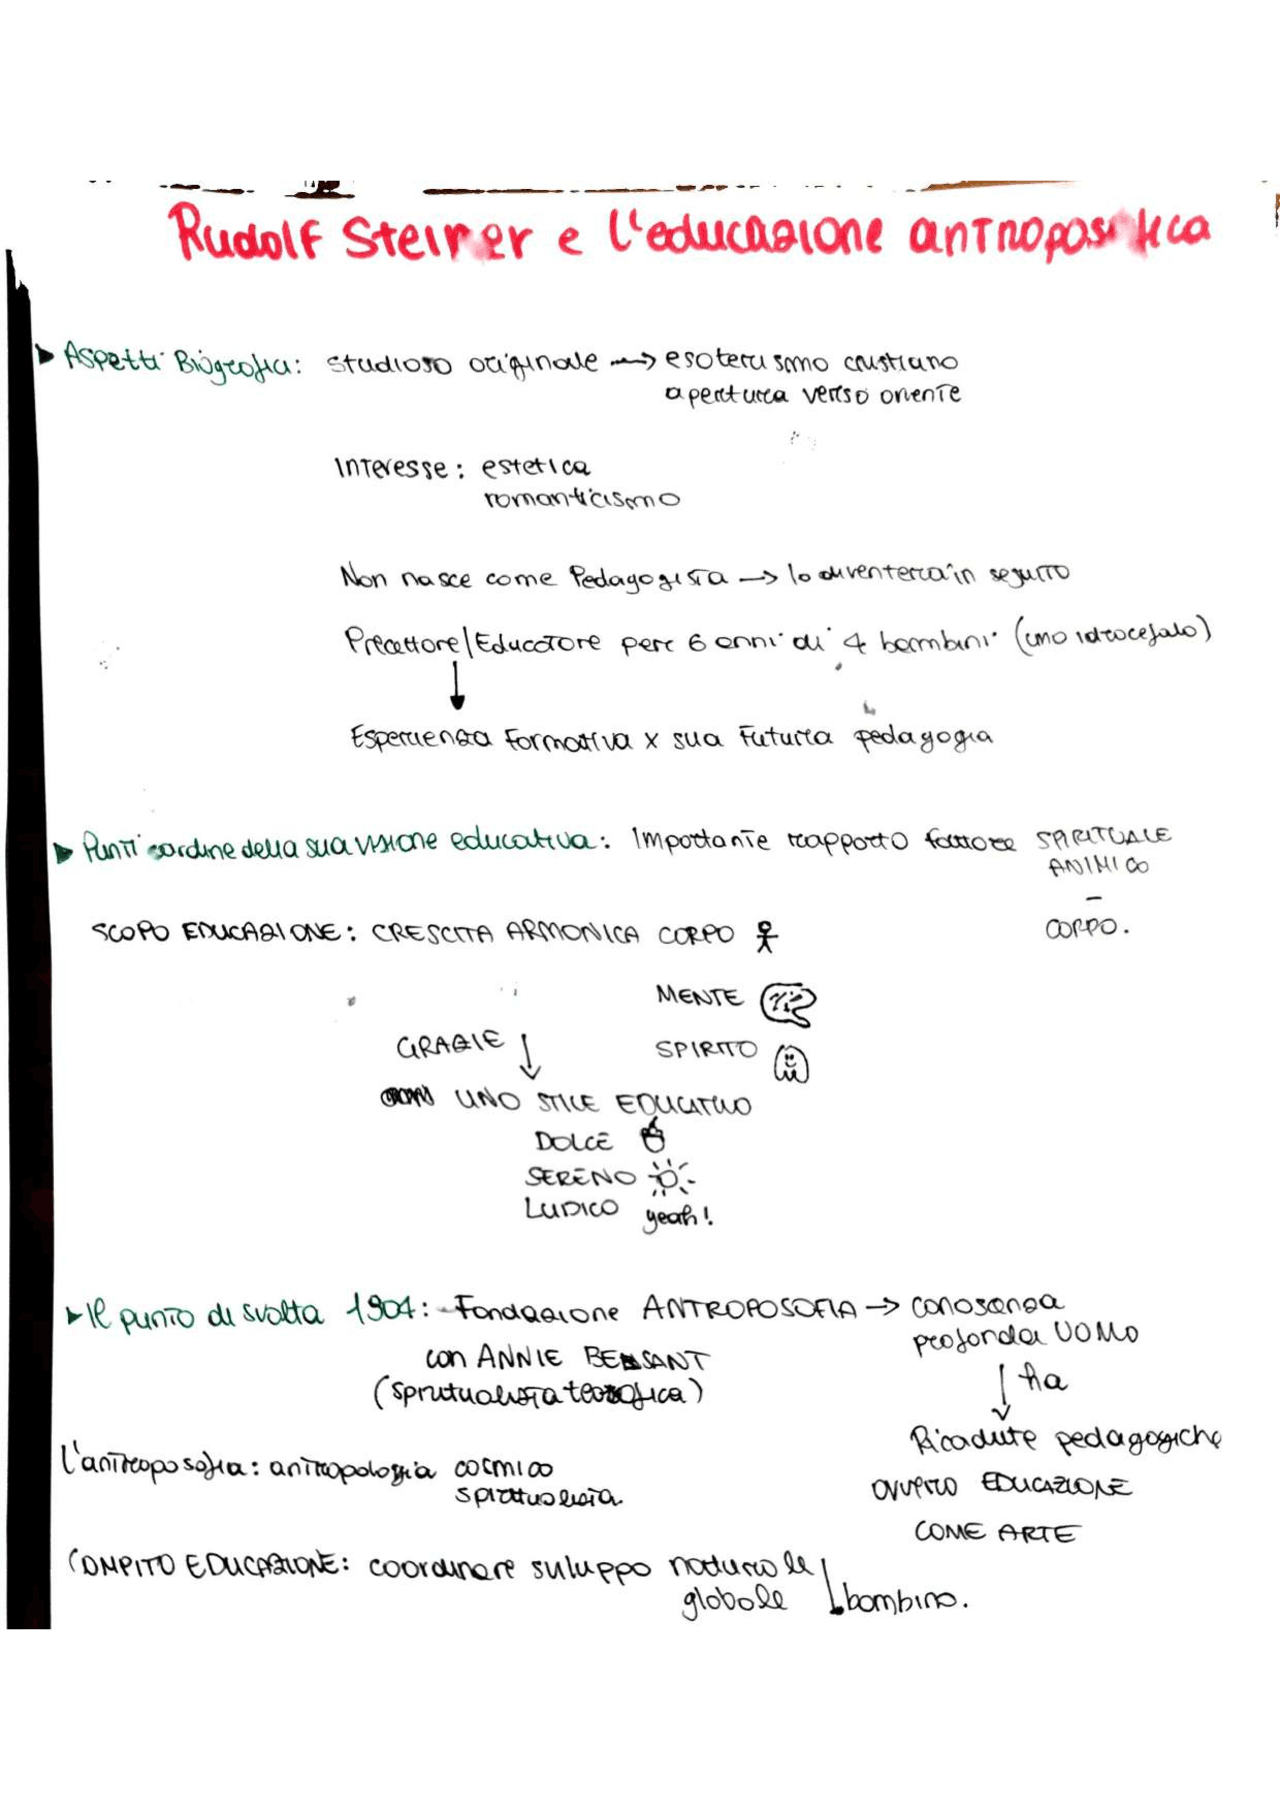 Rudolf Steiner e l'educazione antroposofica
Aspetti Biografici: studioso originale → esoterismo cristiano
apertura verso oriente
Interesse: estetica
romanticismo
Non nasce come Pedagogista → lo diventerà in seguito
Precettore/Educatore per 6 anni di 4 bambini (uno idrocefalo)
Esperienza formativa x sua futura pedagogia
Punti cardine della sua visione educativa: Importante rapporto fattore SPIRITUALE
ANIMICO
-
CORPO.
SCOPO EDUCAZIONE: CRESCITA ARMONICA CORPO
MENTE
GRAZIE
SPIRITO
UNO STILE EDUCATIVO
DOLCE
SERENO
LUDICO yeah!
Il punto di svolta 1904: Fondazione ANTROPOSOFIA → conoscenza
profonda UOMO
con ANNIE BESANT
ha
(spiritualista teosofica)
Ricadute pedagogiche
L'antroposofia: antropologia cosmico
spiritualista.
ovvero EDUCAZIONE
COME ARTE
COMPITO EDUCAZIONE: coordinare sviluppo naturale
globale bambino.